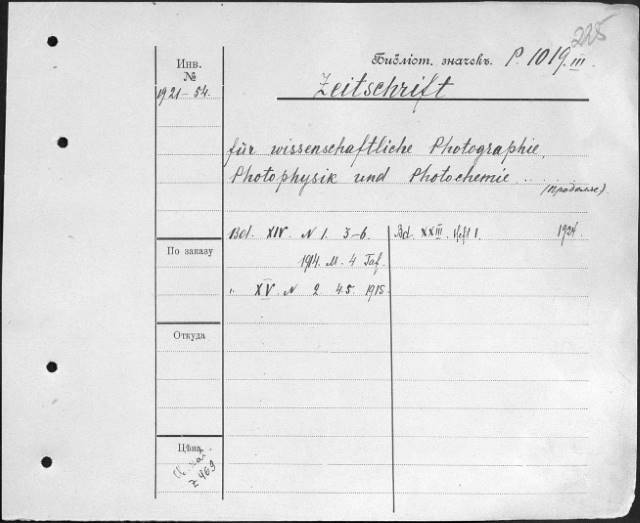 225
Инв. №
Библіот. значекъ. P. 1019. III.
Zeitschrift
1921–54.
für wissenschaftliche Photographie,
Photophysik und Photochemie ..
Bd. XIV. N 1. 3–6.
1914. M. 4 Taf.
" XV. N 2 45. 1915.
Bd. XXIII. Heft 1. 1924.
По заказу
Откуда
Цѣна
Z 469